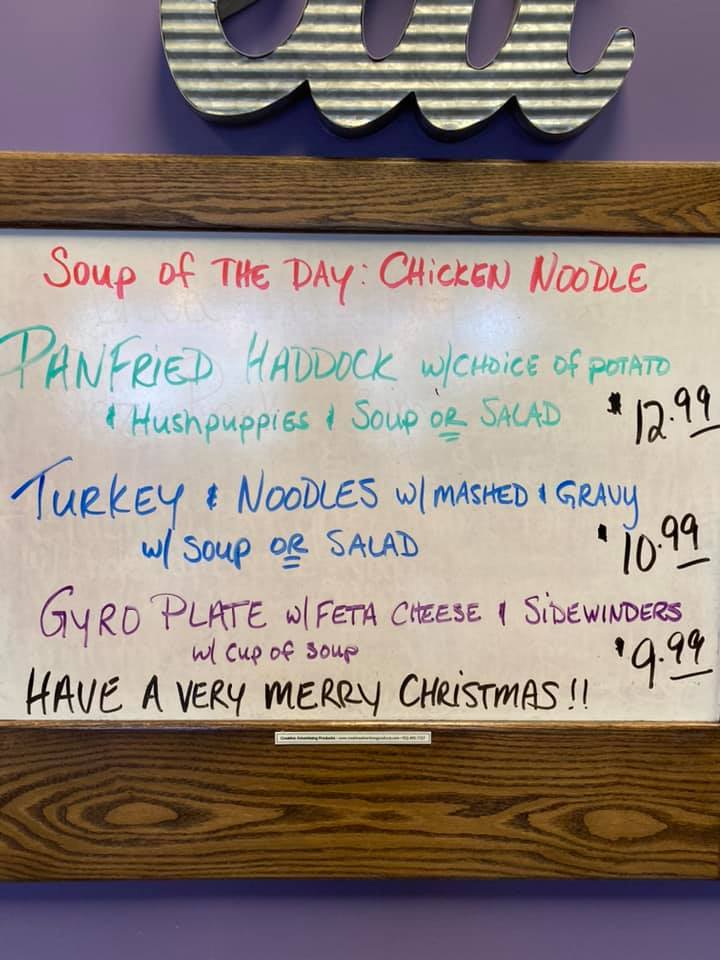 eat
Soup of THE DAY: CHICKEN NOODLE
PANFRIED HADDOCK w/CHOICE of POTATO
& Hushpuppies & Soup OR SALAD $12.99
TURKEY & NOODLES w/ MASHED & GRAVY
w/ Soup OR SALAD $10.99
GYRO PLATE w/ FETA CHEESE & SIDEWINDERS
w/ Cup of Soup $9.99
HAVE A VERY MERRY CHRISTMAS!!
Creative Advertising Products